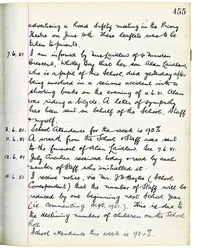 455
advertising a Road Safety meeting in the Priory
Theatre on June 10th. These leaflets were to be
taken to parents.
7.6.81 I am informed by Mrs Laidler of
Crescent, Whitley Bay that her son Alan Laidler,
who is a pupil of this School, died yesterday after
being involved in a serious accident into a
shooting brake on the evening of 6.81. Alan
was riding a bicycle. A letter of sympathy
has been sent on behalf of the School, Staff
myself.
School attendance for the week is 93%.
11.6.81 from the School Staff was sent
to the funeral of Alan Laidler. See 7.6.81.
12.6.81 July Circular received today & read by each
member of Staff who initialled it.
I received notice via Mr (School
Correspondent) that the number of Staff will be
reduced by one beginning next School year
(i.e. commencing Sept. 1981). This is due to
the declining numbers of children on the School
Roll.
School attendance this week is 93%